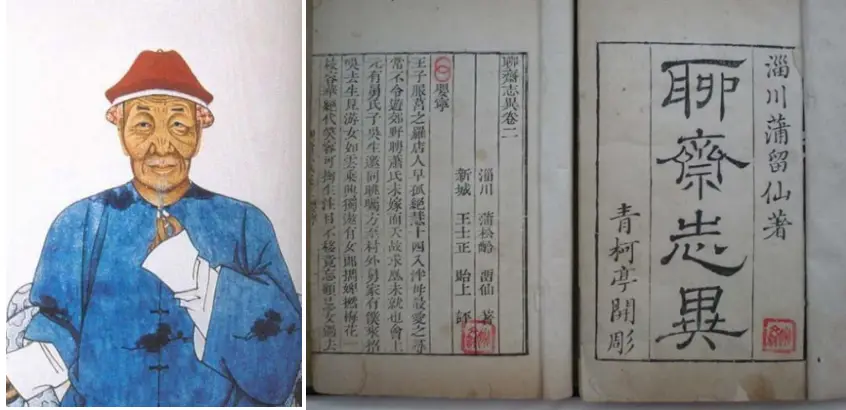 淄川蒲留仙著
聊齋志異
青柯亭開彫
聊齋志異卷二
淄川 蒲松齡 留仙 著
新城 王士正 貽上 評
嬰寧
王子服莒之羅店人早孤絕慧十四入泮母最愛之尋
常不令遊郊野聘蕭氏未嫁而夭故求凰未就也會上
元有舅氏子吳生邀同眺矚方至村外舅家有僕來招
吳去生見游女如雲乘興獨遨有女郎攜婢撚梅花一
枝容華絕代笑容可掬生注目不移竟忘顧忌女過去